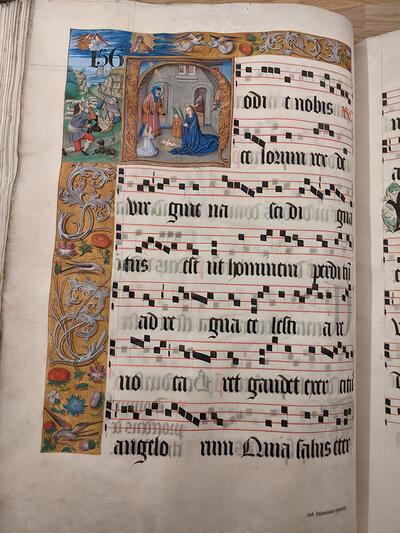 156
Hodi e nobis
ce lorum rex de
vir gine na sci di gna
tus est ut hominem perditū
ad re gna ce lesti a re
uo ca ret gaudet exer citus
angelo rum Quia salus eter